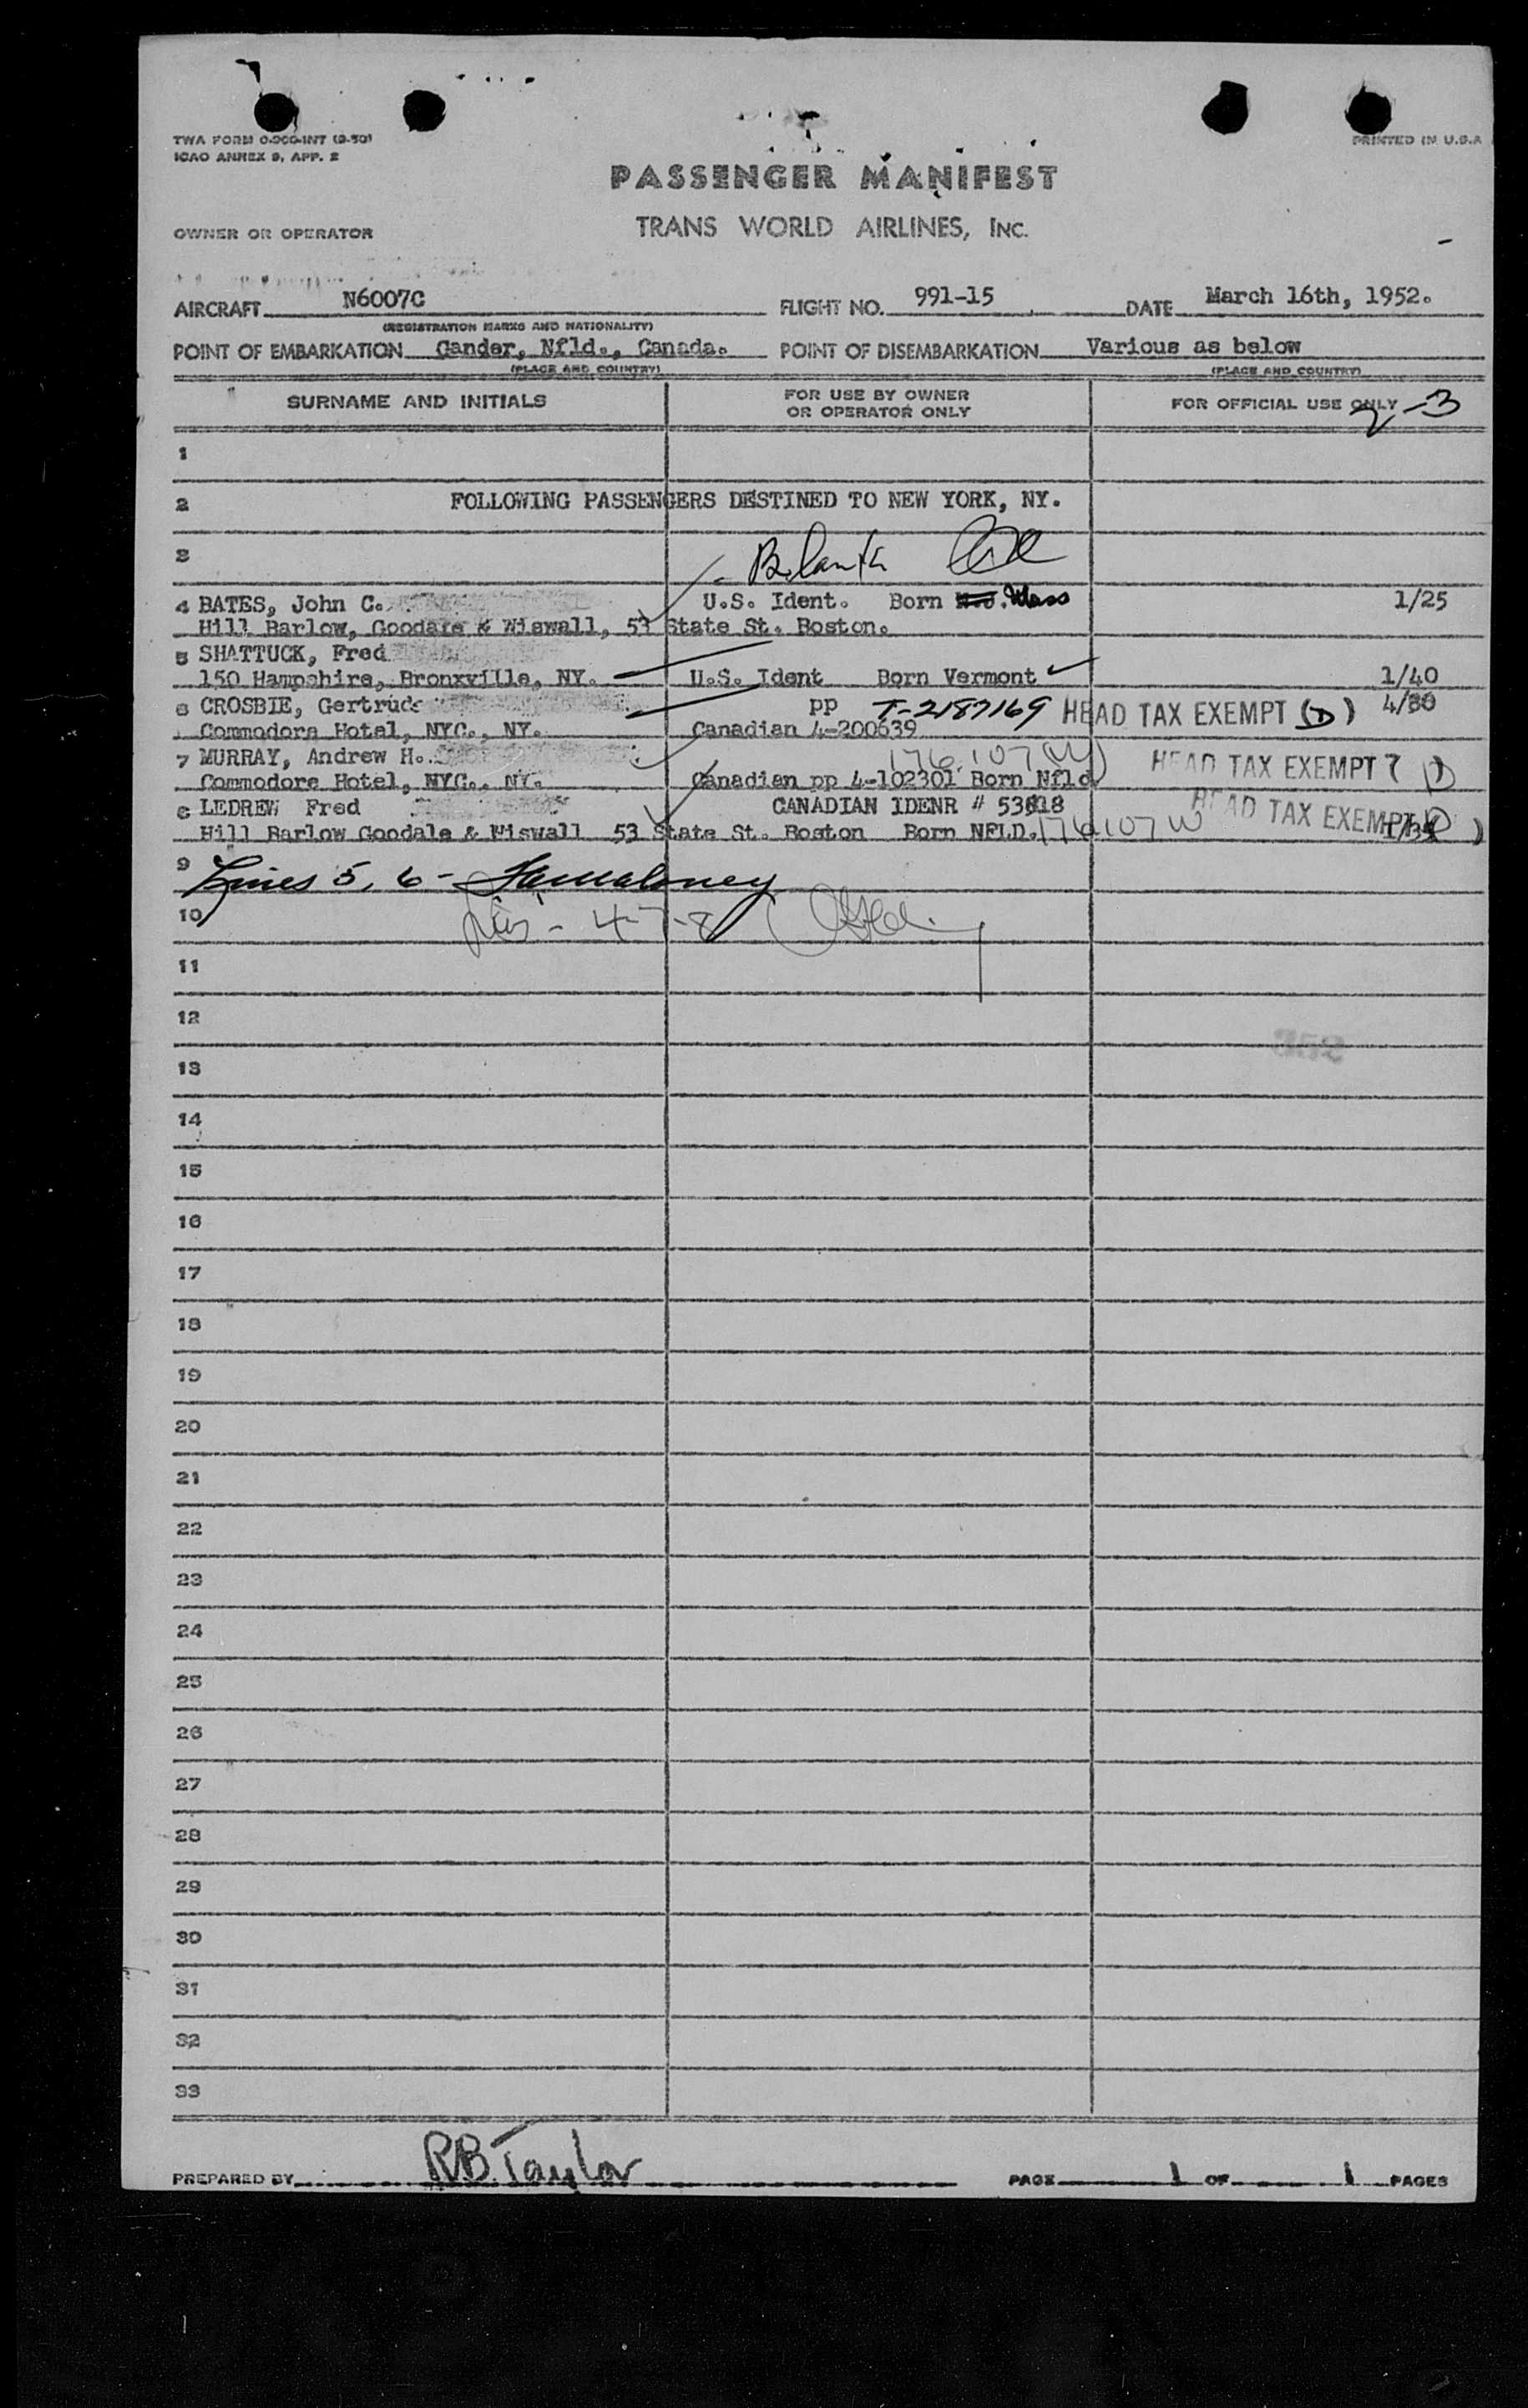 TWA FORM 0-900-INT (9-50)
ICAO ANNEX 9, APP. 2
PRINTED IN U.S.A
PASSENGER MANIFEST
OWNER OR OPERATOR
TRANS WORLD AIRLINES, INC.
AIRCRAFT N6007C FLIGHT NO. 991-15 DATE March 16th, 1952.
(REGISTRATION MARKS AND NATIONALITY)
POINT OF EMBARKATION Gander, Nfld., Canada. POINT OF DISEMBARKATION Various as below
(PLACE AND COUNTRY) (PLACE AND COUNTRY)
SURNAME AND INITIALS FOR USE BY OWNER OR OPERATOR ONLY FOR OFFICIAL USE ONLY 2-3
1
2 FOLLOWING PASSENGERS DESTINED TO NEW YORK, NY.
3
4 BATES, John C. U.S. Ident. Born N.J. Mass 1/25
Hill Barlow, Goodale & Wiswall, 53 State St. Boston.
5 SHATTUCK, Fred
150 Hampshire, Bronxville, NY. U.S. Ident Born Vermont 1/40
6 CROSBIE, Gertrude pp T-2187169 HEAD TAX EXEMPT (D) 4/30
Commodore Hotel, NYC., NY. Canadian 4-200639
7 MURRAY, Andrew H. 176.107(W) HEAD TAX EXEMPT (D)
Commodore Hotel, NYC., NY. Canadian pp 4-102301 Born Nfld
8 LEDREW Fred CANADIAN IDENR # 53618 HEAD TAX EXEMPT (D)
Hill Barlow Goodale & Wiswall 53 State St. Boston Born NFLD. 176.107 W
9 Lines 5, 6 -
10 Lines - 4-7-8
11
12
352
13
14
15
16
17
18
19
20
21
22
23
24
25
26
27
28
29
30
31
32
33
PREPARED BY R.B. Taylor PAGE 1 OF 1 PAGES